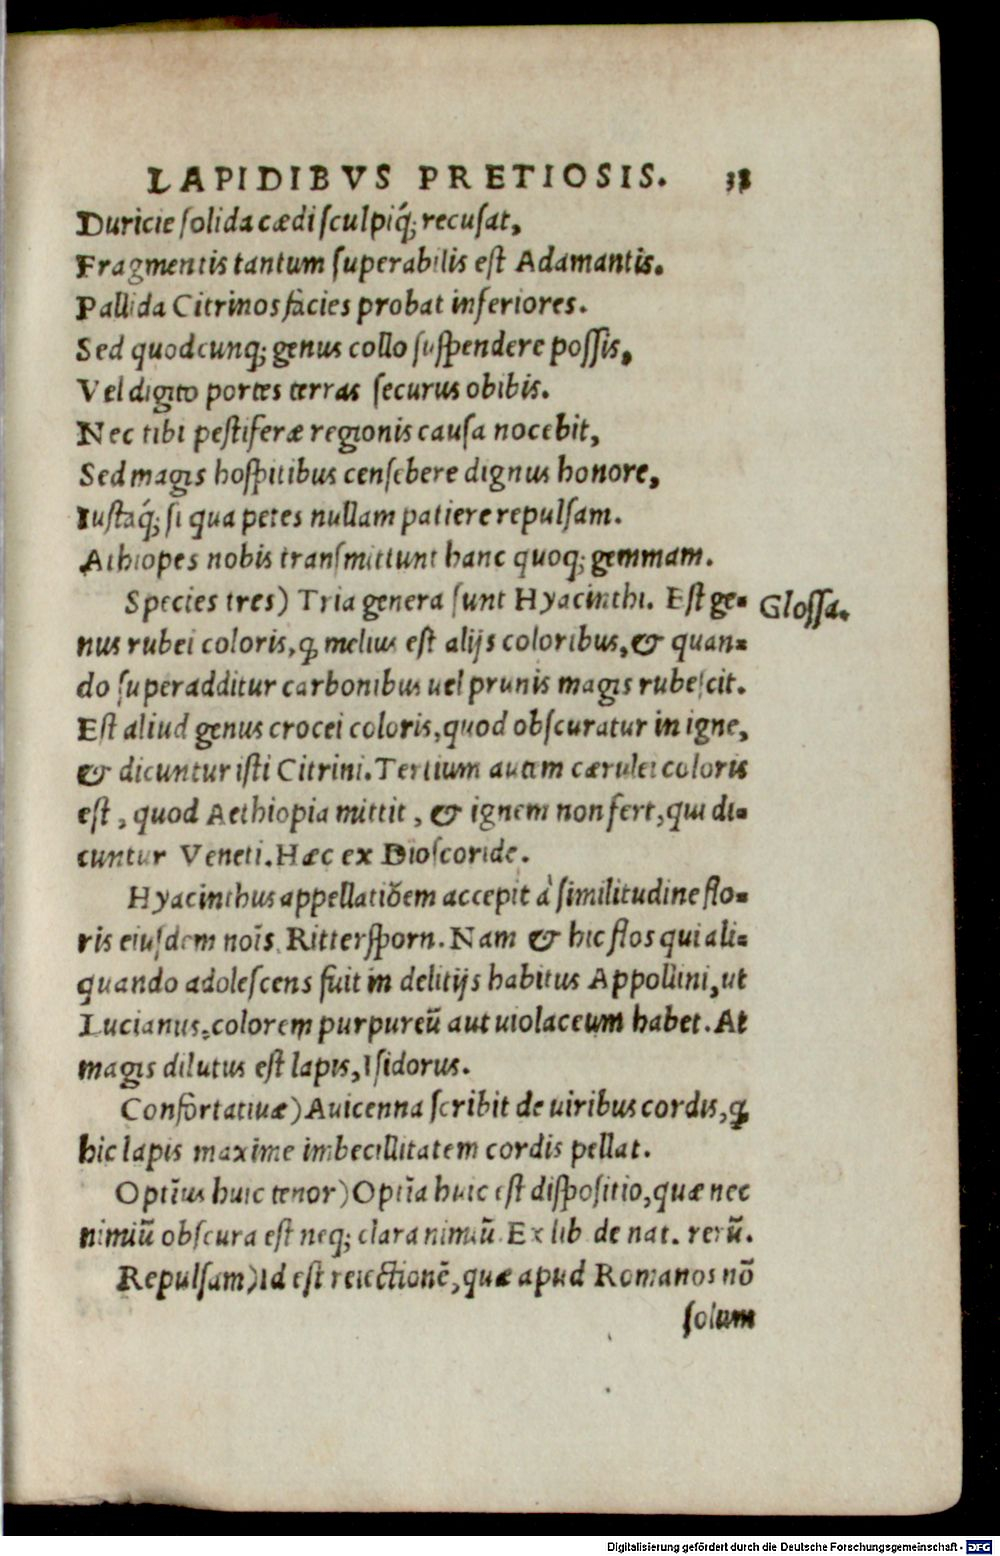 LAPIDIBVS PRETIOSIS. 38
Duricie ſolida cædi ſculpiq́; recuſat,
Fragmentis tantum ſuperabilis eſt Adamantis.
Pallida Citrinos facies probat inferiores.
Sed quodcunq; genus collo ſuſpendere poſſis,
Vel digito portes terras ſecurus obibis.
Nec tibi peſtiferæ regionis cauſa nocebit,
Sed magis hoſpitibus cenſebere dignus honore,
Iuſtaq́; ſi qua petes nullam patiere repulſam.
Æthiopes nobis tranſmittunt hanc quoq; gemmam.
Species tres) Tria genera ſunt Hyacinthi. Eſt ge- Gloſſa.
nus rubei coloris, ꝗ melius eſt alijs coloribus, & quan-
do ſuperadditur carbonibus uel prunis magis rubeſcit.
Eſt aliud genus crocei coloris, quod obſcuratur in igne,
& dicuntur iſti Citrini. Tertium autem cærulei coloris
eſt, quod Aethiopia mittit, & ignem non fert, qui di-
cuntur Veneti. Hæc ex Dioſcoride.
Hyacinthus appellatiōem accepit à ſimilitudine flo-
ris eiuſdem noīs Ritterſporn. Nam & hic flos qui ali-
quando adoleſcens fuit in delitijs habitus Appollini, ut
Lucianus, colorem purpureū aut uiolaceum habet. At
magis dilutus eſt lapis, Iſidorus.
Confortatiuæ) Auicenna ſcribit de uiribus cordis, ꝗ
hic lapis maxime imbecillitatem cordis pellat.
Optīus huic tenor) Optīa huic eſt diſpoſitio, quæ nec
nimiū obſcura eſt neq; clara nimiū. Ex lib de nat. rerū.
Repulſam) Id eſt reiectionē, quæ apud Romanos nō
ſolum
Digitalisierung gefördert durch die Deutsche Forschungsgemeinschaft - DFG